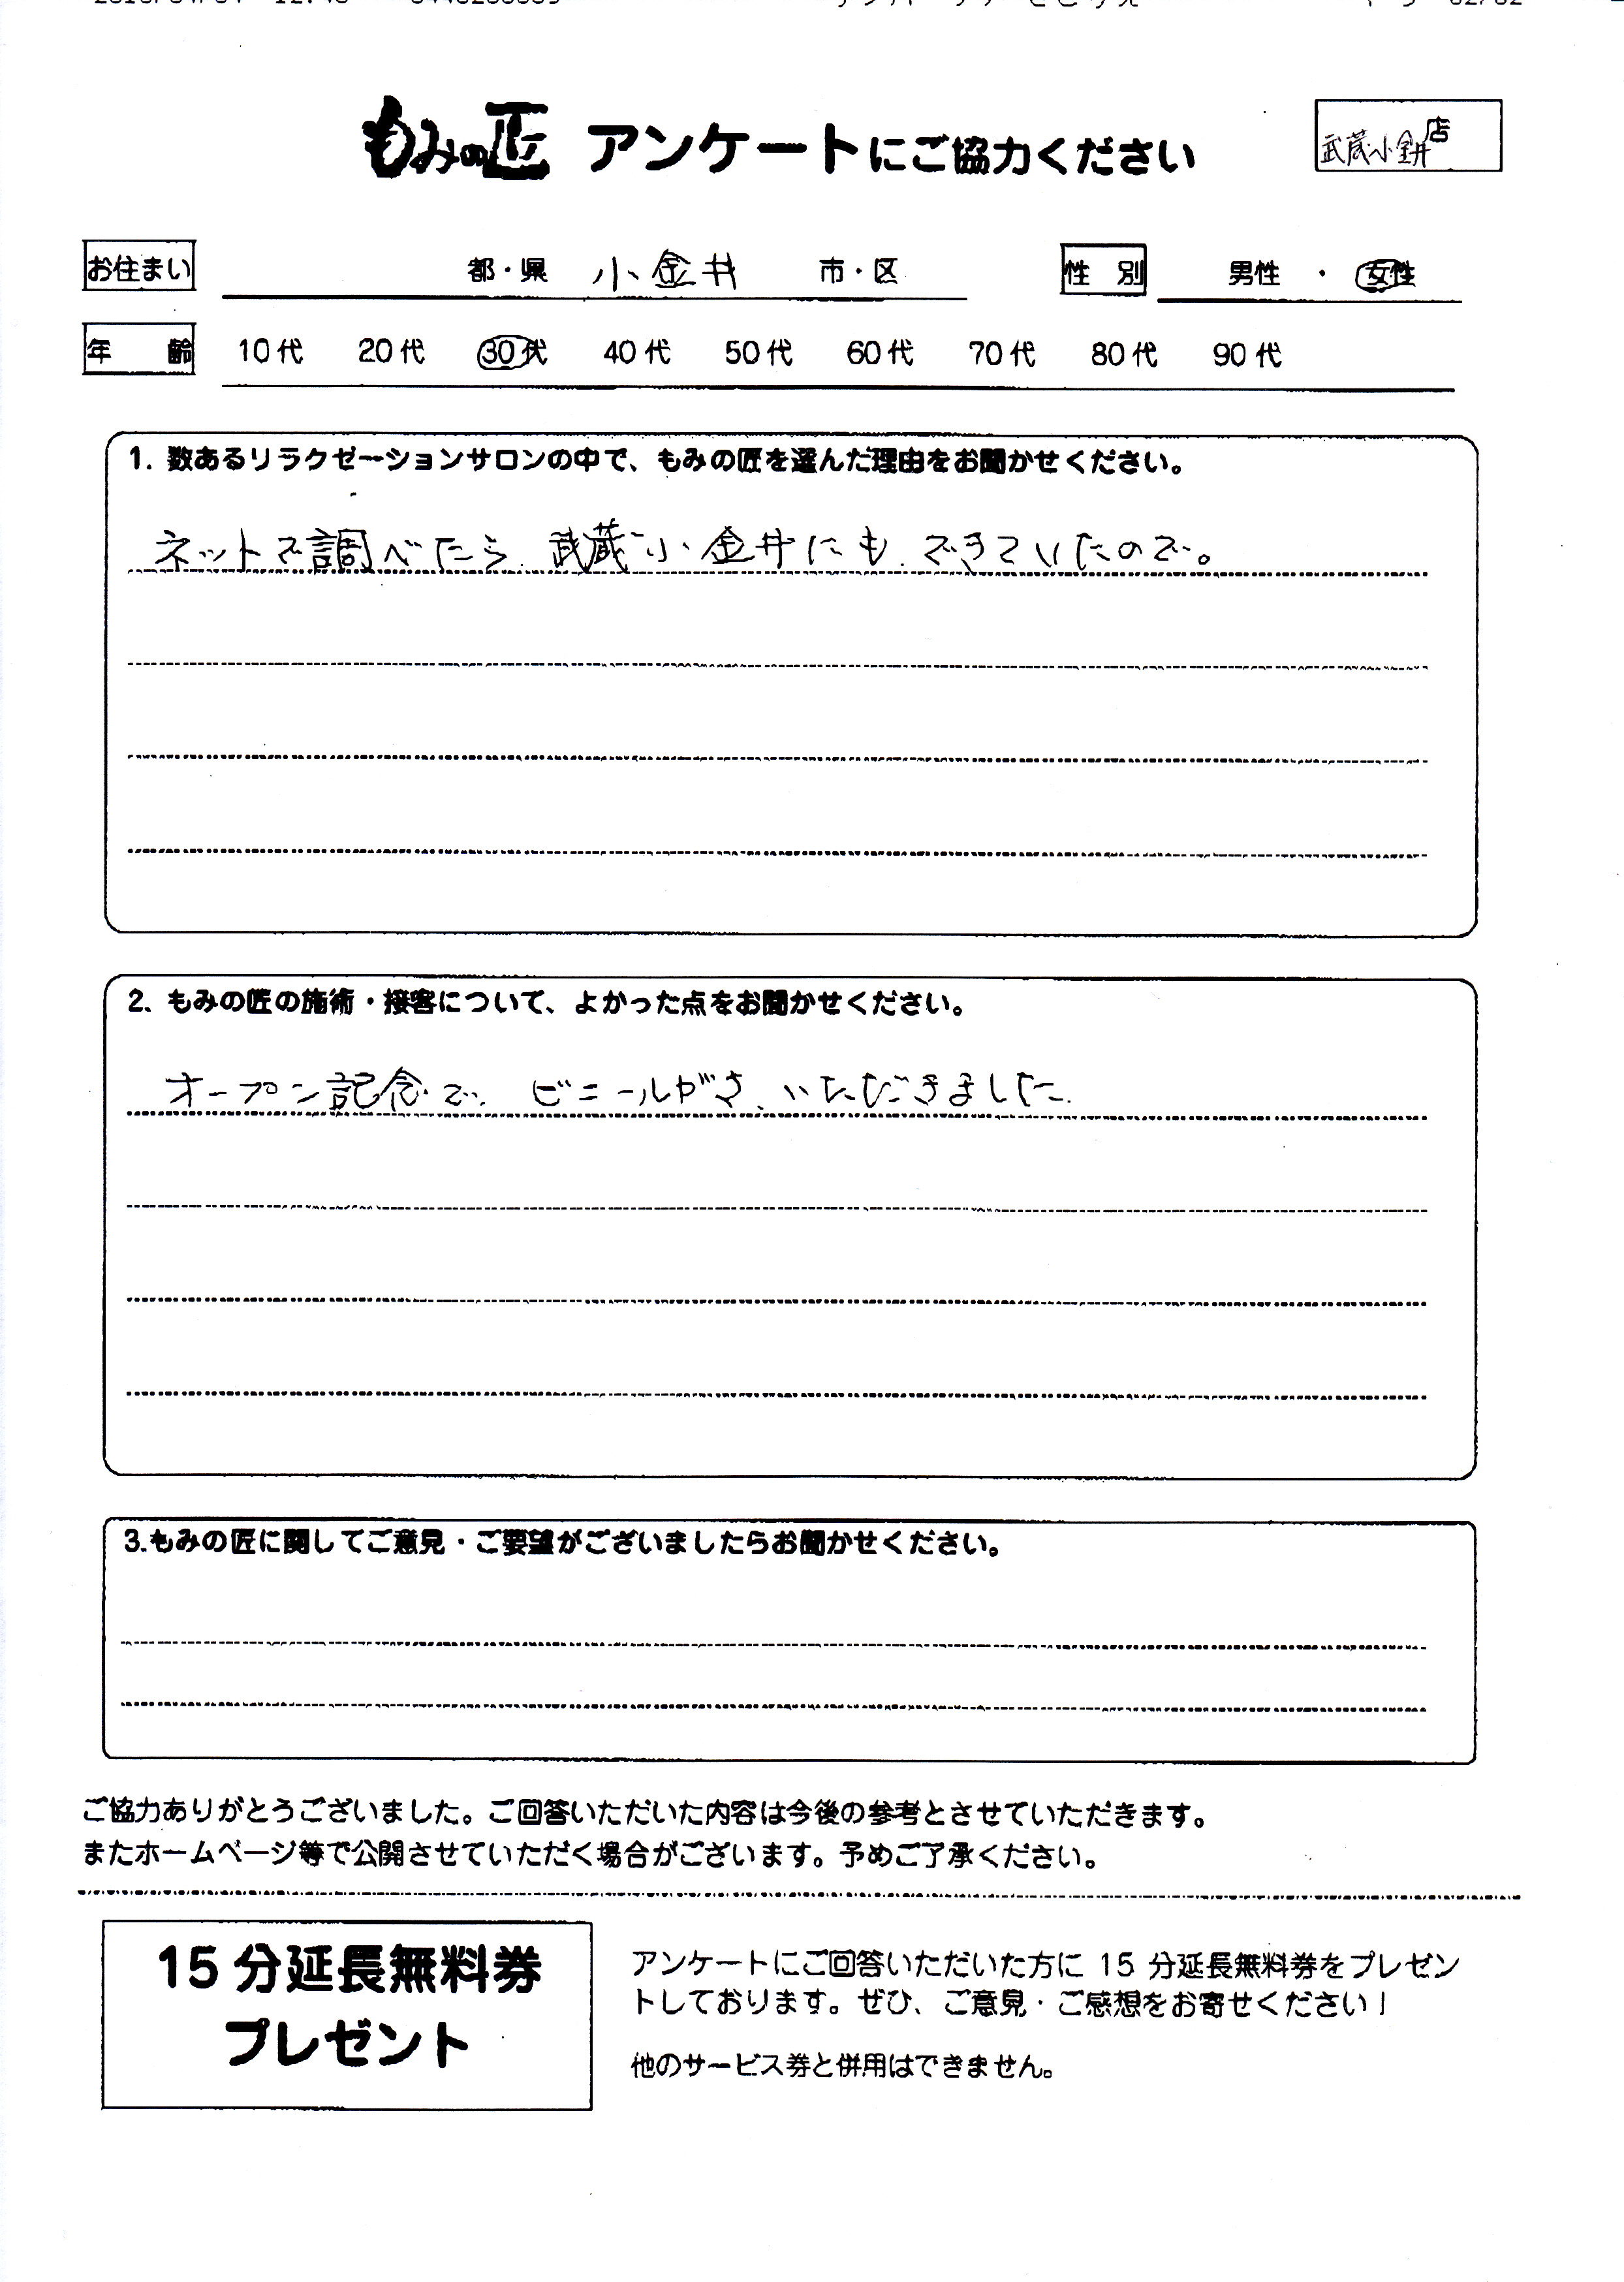 もみの匠 アンケートにご協力ください
武蔵小金井店
お住まい 都・県 小金井 市・区 性別 男性 ・ 女性
年齢 10代 20代 30代 40代 50代 60代 70代 80代 90代
1. 数あるリラクゼーションサロンの中で、もみの匠を選んだ理由をお聞かせください。
ネットで調べたら、武蔵小金井にも、できていたので。
2. もみの匠の施術・接客について、よかった点をお聞かせください。
オープン記念で、ビニールがさ、いただきました。
3.もみの匠に関してご意見・ご要望がございましたらお聞かせください。
ご協力ありがとうございました。ご回答いただいた内容は今後の参考とさせていただきます。
またホームページ等で公開させていただく場合がございます。予めご了承ください。
15分延長無料券
プレゼント
アンケートにご回答いただいた方に 15 分延長無料券をプレゼン
トしております。ぜひ、ご意見・ご感想をお寄せください！
他のサービス券と併用はできません。